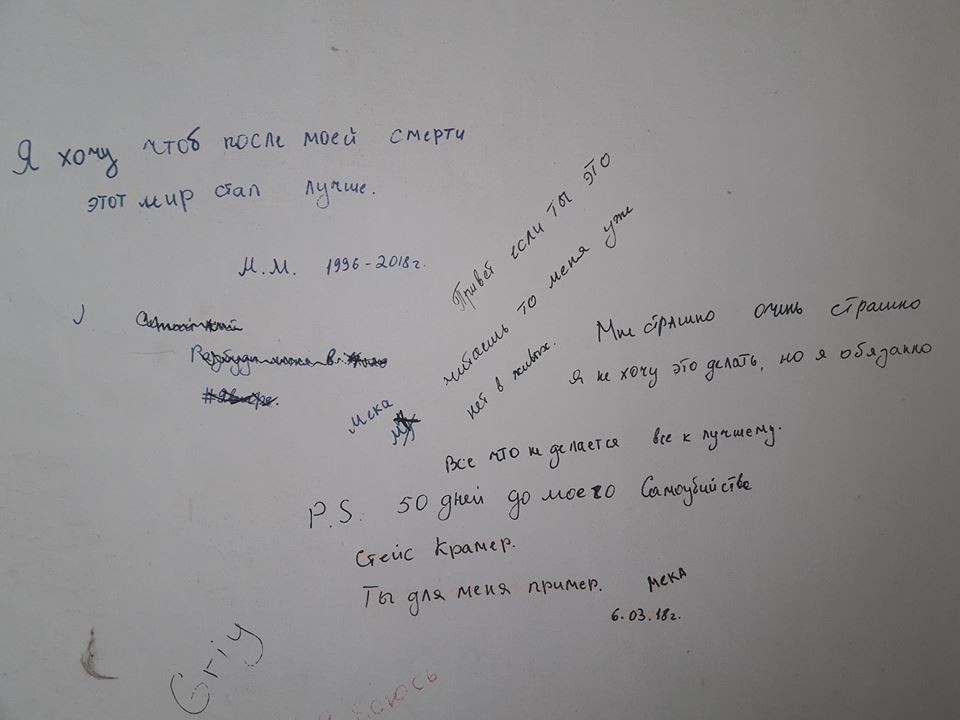 Я хочу чтоб после моей смерти
этот мир стал лучше.
М.М. 1996-2018г.
Мека
Привет если ты это
читаешь то меня уже
нет в живых.
Мне страшно очинь страшно
Я не хочу это делать, но я обязанно
Все что не делается все к лучшему.
P.S. 50 дней до моего Самоубийства
Стейс Крамер.
Ты для меня пример. Мека
6.03.18г.
Griy
боюсь